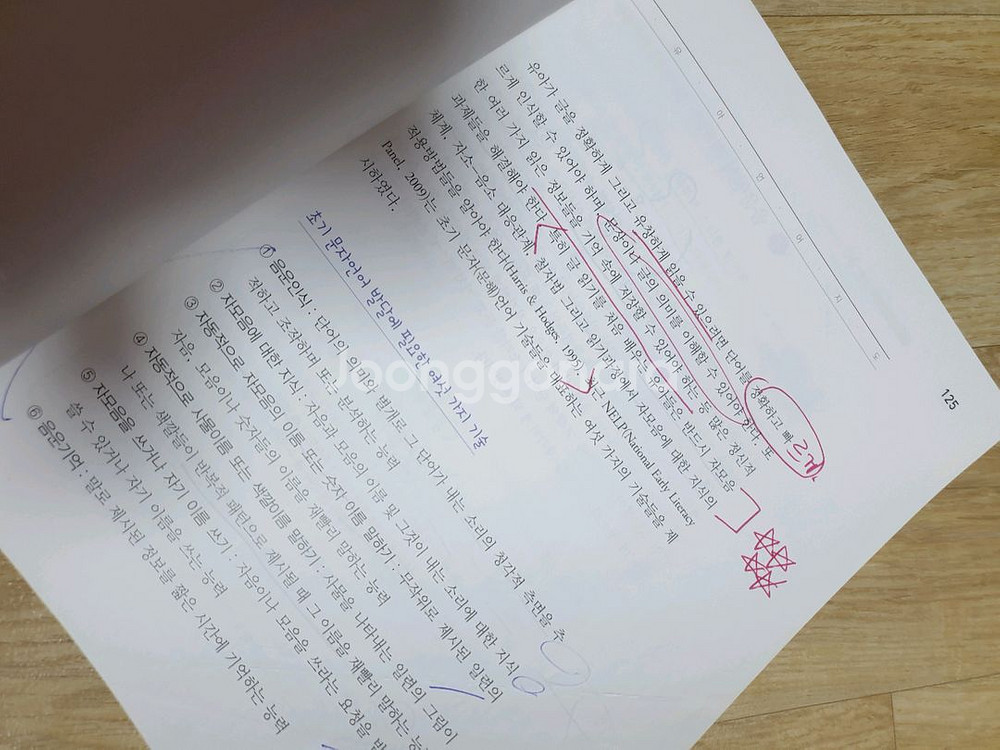 유 아 언 어 지 도
125
유아가 글을 정확하게 그리고 유창하게 읽을 수 있으려면 단어를 정확하고 빠
르게 인식할 수 있어야 하며, 문장이나 글의 의미를 이해할 수 있어야 한다. 또
한 여러 가지 읽은 정보들을 기억 속에 저장할 수 있어야 하는 등 많은 정신적
과제들을 해결해야 한다. 특히 글 읽기를 처음 배우는 유아들은 반드시 자모음
체계, 자소-음소 대응관계, 철자법 그리고 읽기과정에서 자모음에 대한 지식의
적용방법들을 알아야 한다(Harris & Hodges, 1995). 최근 NELP(National Early Literacy
Panel, 2009)는 초기 문자(문해)언어 기술들을 예측하는 여섯 가지의 기술들을 제
시하였다.
초기 문자언어 발달에 필요한 여섯 가지 기술
① 음운인식 : 단어의 의미와 별개로 그 단어가 내는 소리의 청각적 측면을 추
적하고 조작하며 또는 분석하는 능력
② 자모음에 대한 지식 : 자음과 모음의 이름 및 그것이 내는 소리에 대한 지식
③ 자동적으로 자모음의 이름 또는 숫자 이름 말하기 : 무작위로 제시된 일련의
자음, 모음이나 숫자들의 이름을 재빨리 말하는 능력
④ 자동적으로 사물이름 또는 색깔이름 말하기 : 사물을 나타내는 일련의 그림이
나 또는 색깔들이 반복적 패턴으로 제시될 때 그 이름을 재빨리 말하는 능
⑤ 자모음을 쓰거나 자기 이름 쓰기 : 자음이나 모음을 쓰라는 요청을 받
쓸 수 있거나 자기 이름을 쓰는 능력
⑥ 음운기억 : 말로 제시된 정보를 짧은 시간에 기억하는 능력
Joonggonara